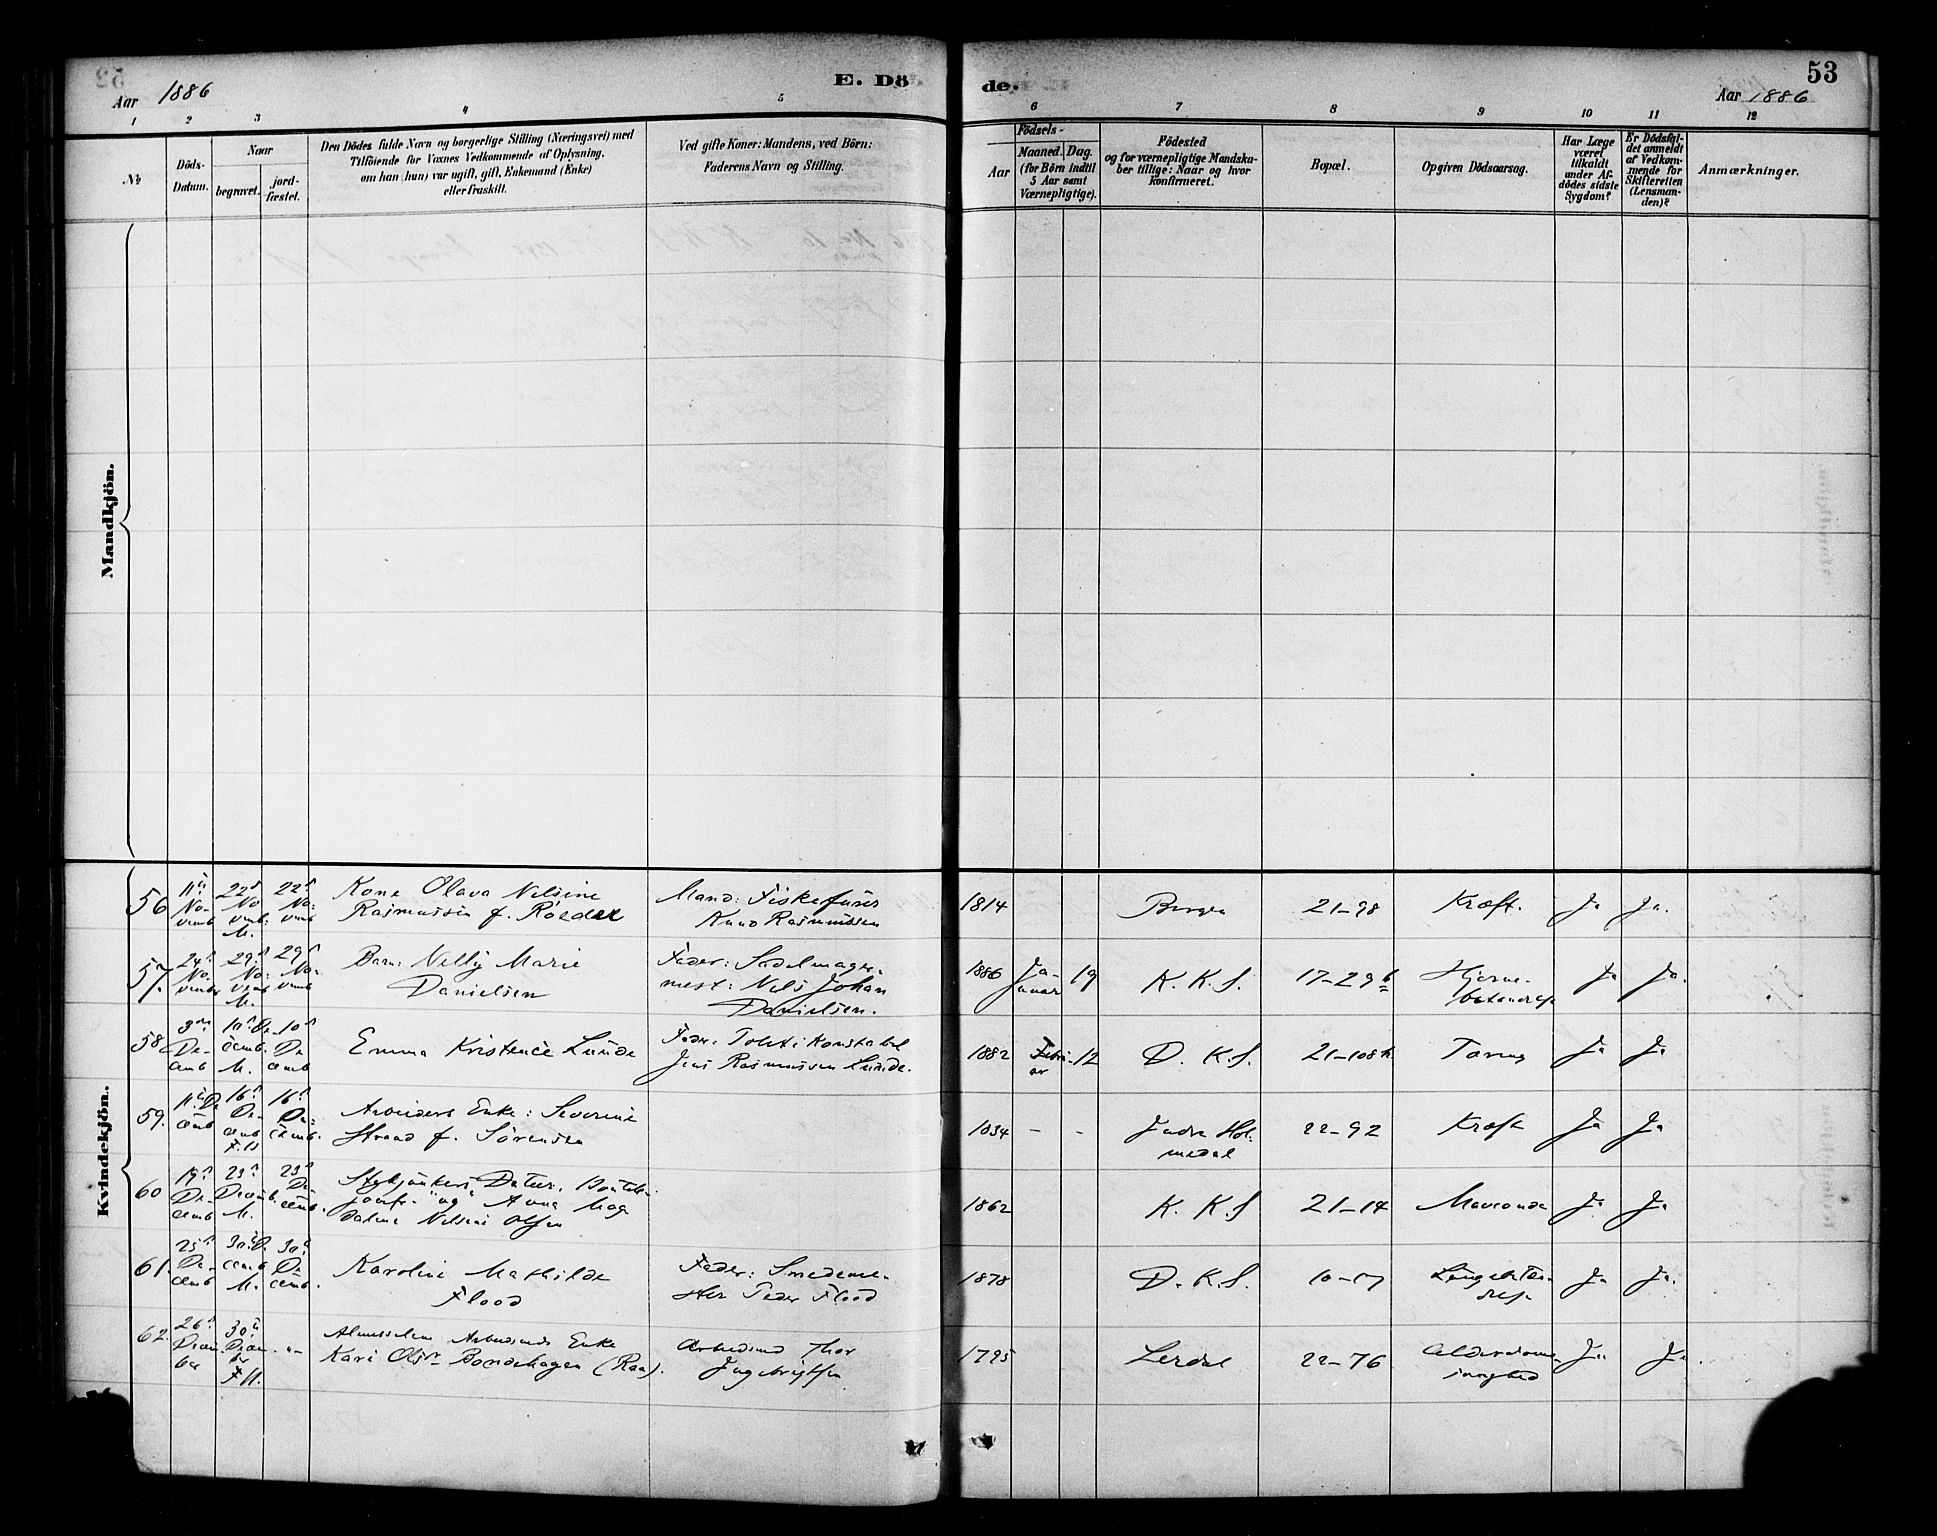 Aar 1886
E. Döde.
53
Aar 1886
1 2 3 4 5 6 7 8 9 10 11 12
№
Döds-
Datum.
Naar
begravet.
jord-
fæstet.
Den Dödes fulde Navn og borgerlige Stilling (Næringsvei) med
Tilföiende for Voxnes Vedkommende af Oplysning,
om han (hun) var ugift, gift, Enkemand (Enke)
eller fraskilt.
Ved gifte Koner: Mandens, ved Börn:
Faderens Navn og Stilling.
Födsels-
Aar
Maaned. Dag.
(for Börn indtil
5 Aar samt
Værnepligtige).
Födested
og for værnepligtige Mandska-
ber tillige: Naar og hvor
konfirmeret.
Bopæl.
Opgiven Dödsaarsag.
Har Læge
været
tilkaldt
under Af-
dödes sidste
Sygdom?
Er Dödsfal-
det anmeldt
af Vedkom-
mende for
Skifteretten
(Lensman-
den)?
Anmærkninger.
Mandkjön.
Kvindekjön.
56
11
No-
vemb
22
No
vmb.
M.
22
No-
vmb
Kone Olava Nilsine
Rasmussen f.
Mand:
Knud Rasmussen
1814
Bergen
21-98
Kræft.
Ja
Ja.
57.
24
No-
vember
29
No-
vmb
M.
29
No-
vmb
Barn: Nelly Marie
Danielsen
Fader: Sadelmager-
mest: Nils Johan
Danielsen.
1886
Ja-
nuar
19
K. K. S.
17-29 b
Hjerne-
betændelse
Ja
Ja.
58
De-
cemb
10 De-
cemb.
M.
10
De
cemb
Emma Kristence Lunde
Fader: Toldkonstabel
Jens Rasmussen Lunde.
1882
Febru-
ar
12
D. K. S.
21-108
Tæring
Ja
Ja
59.
11 De
cemb
16
De-
cemb
16
De-
cemb.
Arbeiders Enke: Severine
Strand f. Sørensen
1834
-
-
Indre Hol-
medal
22-92
Kræft
Ja
Ja
60
19
De-
cemb
23
Decemb.
M.
23
De
cemb.
Datter,
jomfr. og Anna Mag
dalene Nilsine Olsen
1862
K. K. S
21-14
Ja
Ja
61.
25
De-
cemb
30 De
cemb
M.
30
De
cemb.
Karoline Mathilde
Flood
Fader: Smedeme-
ster Peder Flood
1878
D. K. S.
10-17
Ja
Ja.
62.
26
Decem-
ber
30
Decem-
ber
"-
Almisselem Arbeidsmds Enke
Kari Olsdr Bondehagen (Raa).
Arbeidsmd Thor
Ingebrigtsen
1795
Lerdal
22-76
Alderdoms-
svaghed
Ja
Ja.